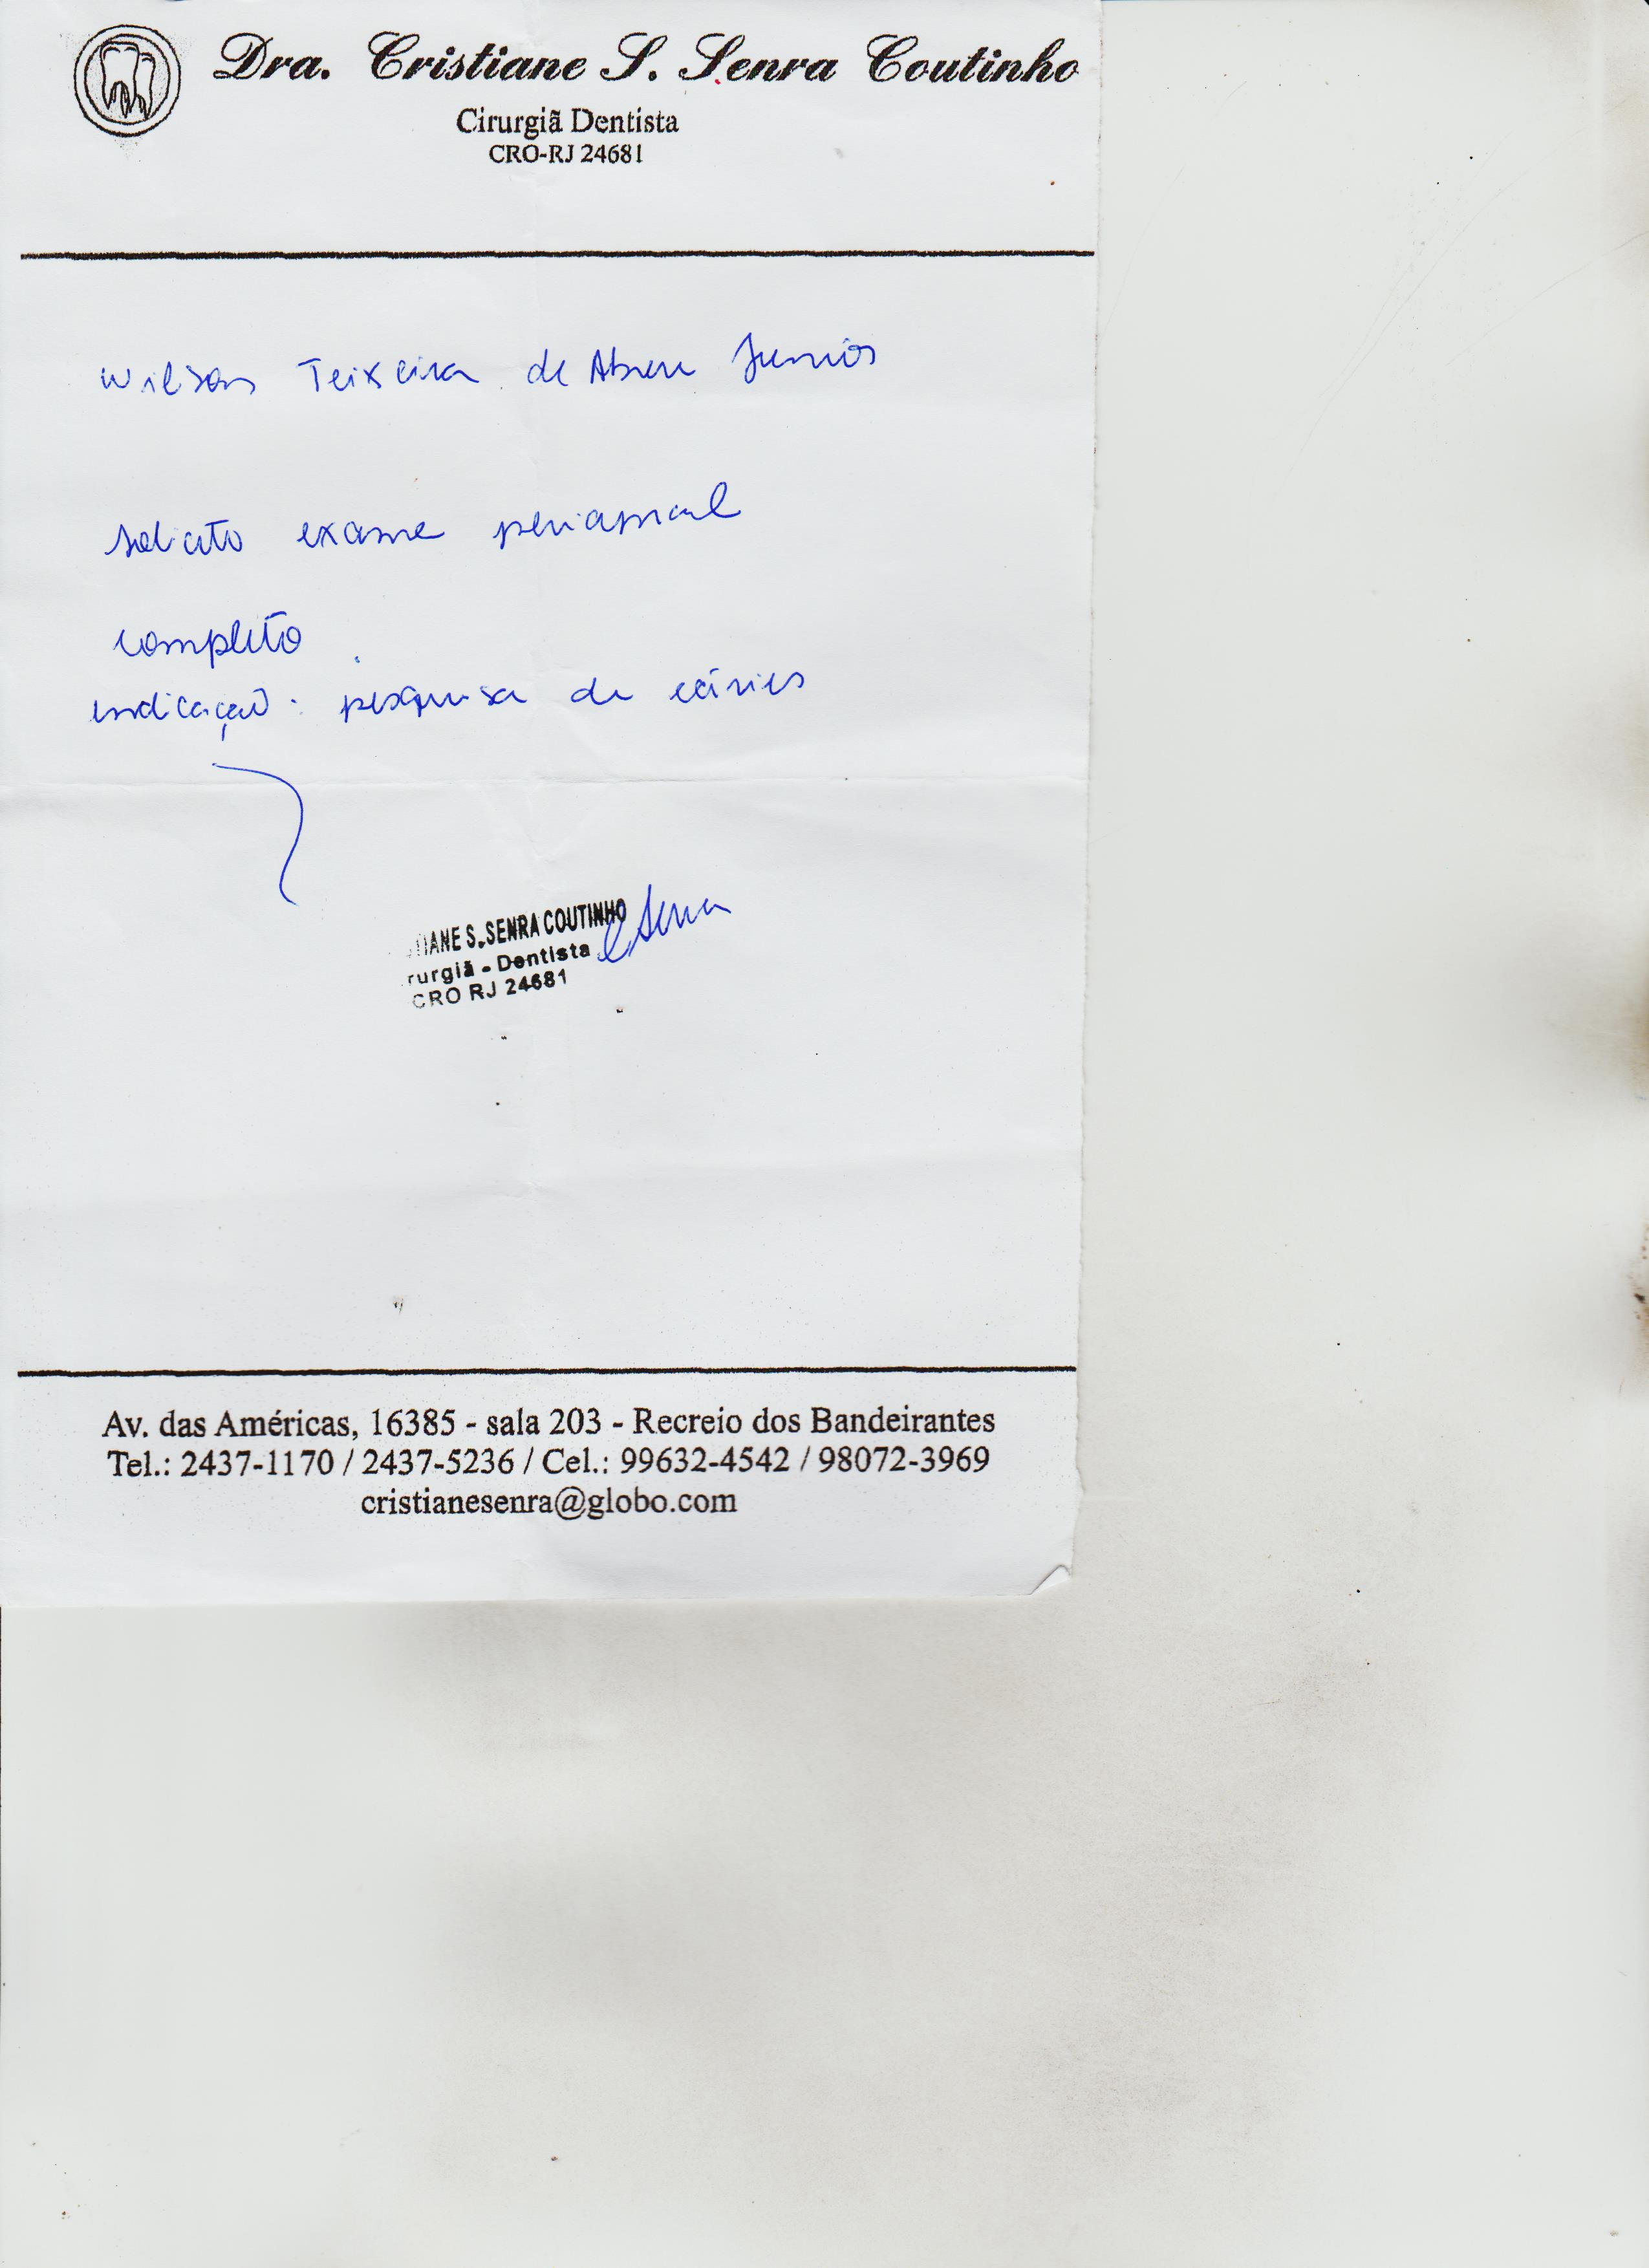 Dra. Cristiane S. Senra Coutinho
Cirurgiã Dentista
CRO-RJ 24681
Wilson Teixeira de Abreu Junior
solicito exame periapical
completo
indicação: pesquisa de cáries
TIANE S. SENRA COUTINHO
rurgiã - Dentista
CRO RJ 24681
CSenra
Av. das Américas, 16385 - sala 203 - Recreio dos Bandeirantes
Tel.: 2437-1170 / 2437-5236 / Cel.: 99632-4542 / 98072-3969
cristianesenra@globo.com